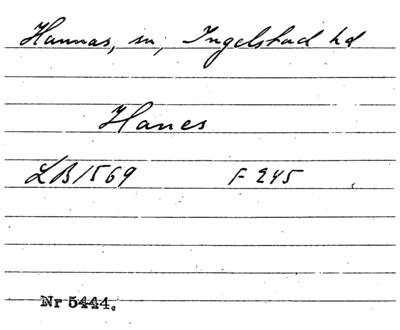 Hannas, sn, Ingelstad hd
Hanes
LB 1569 F 245
Nr 5444.